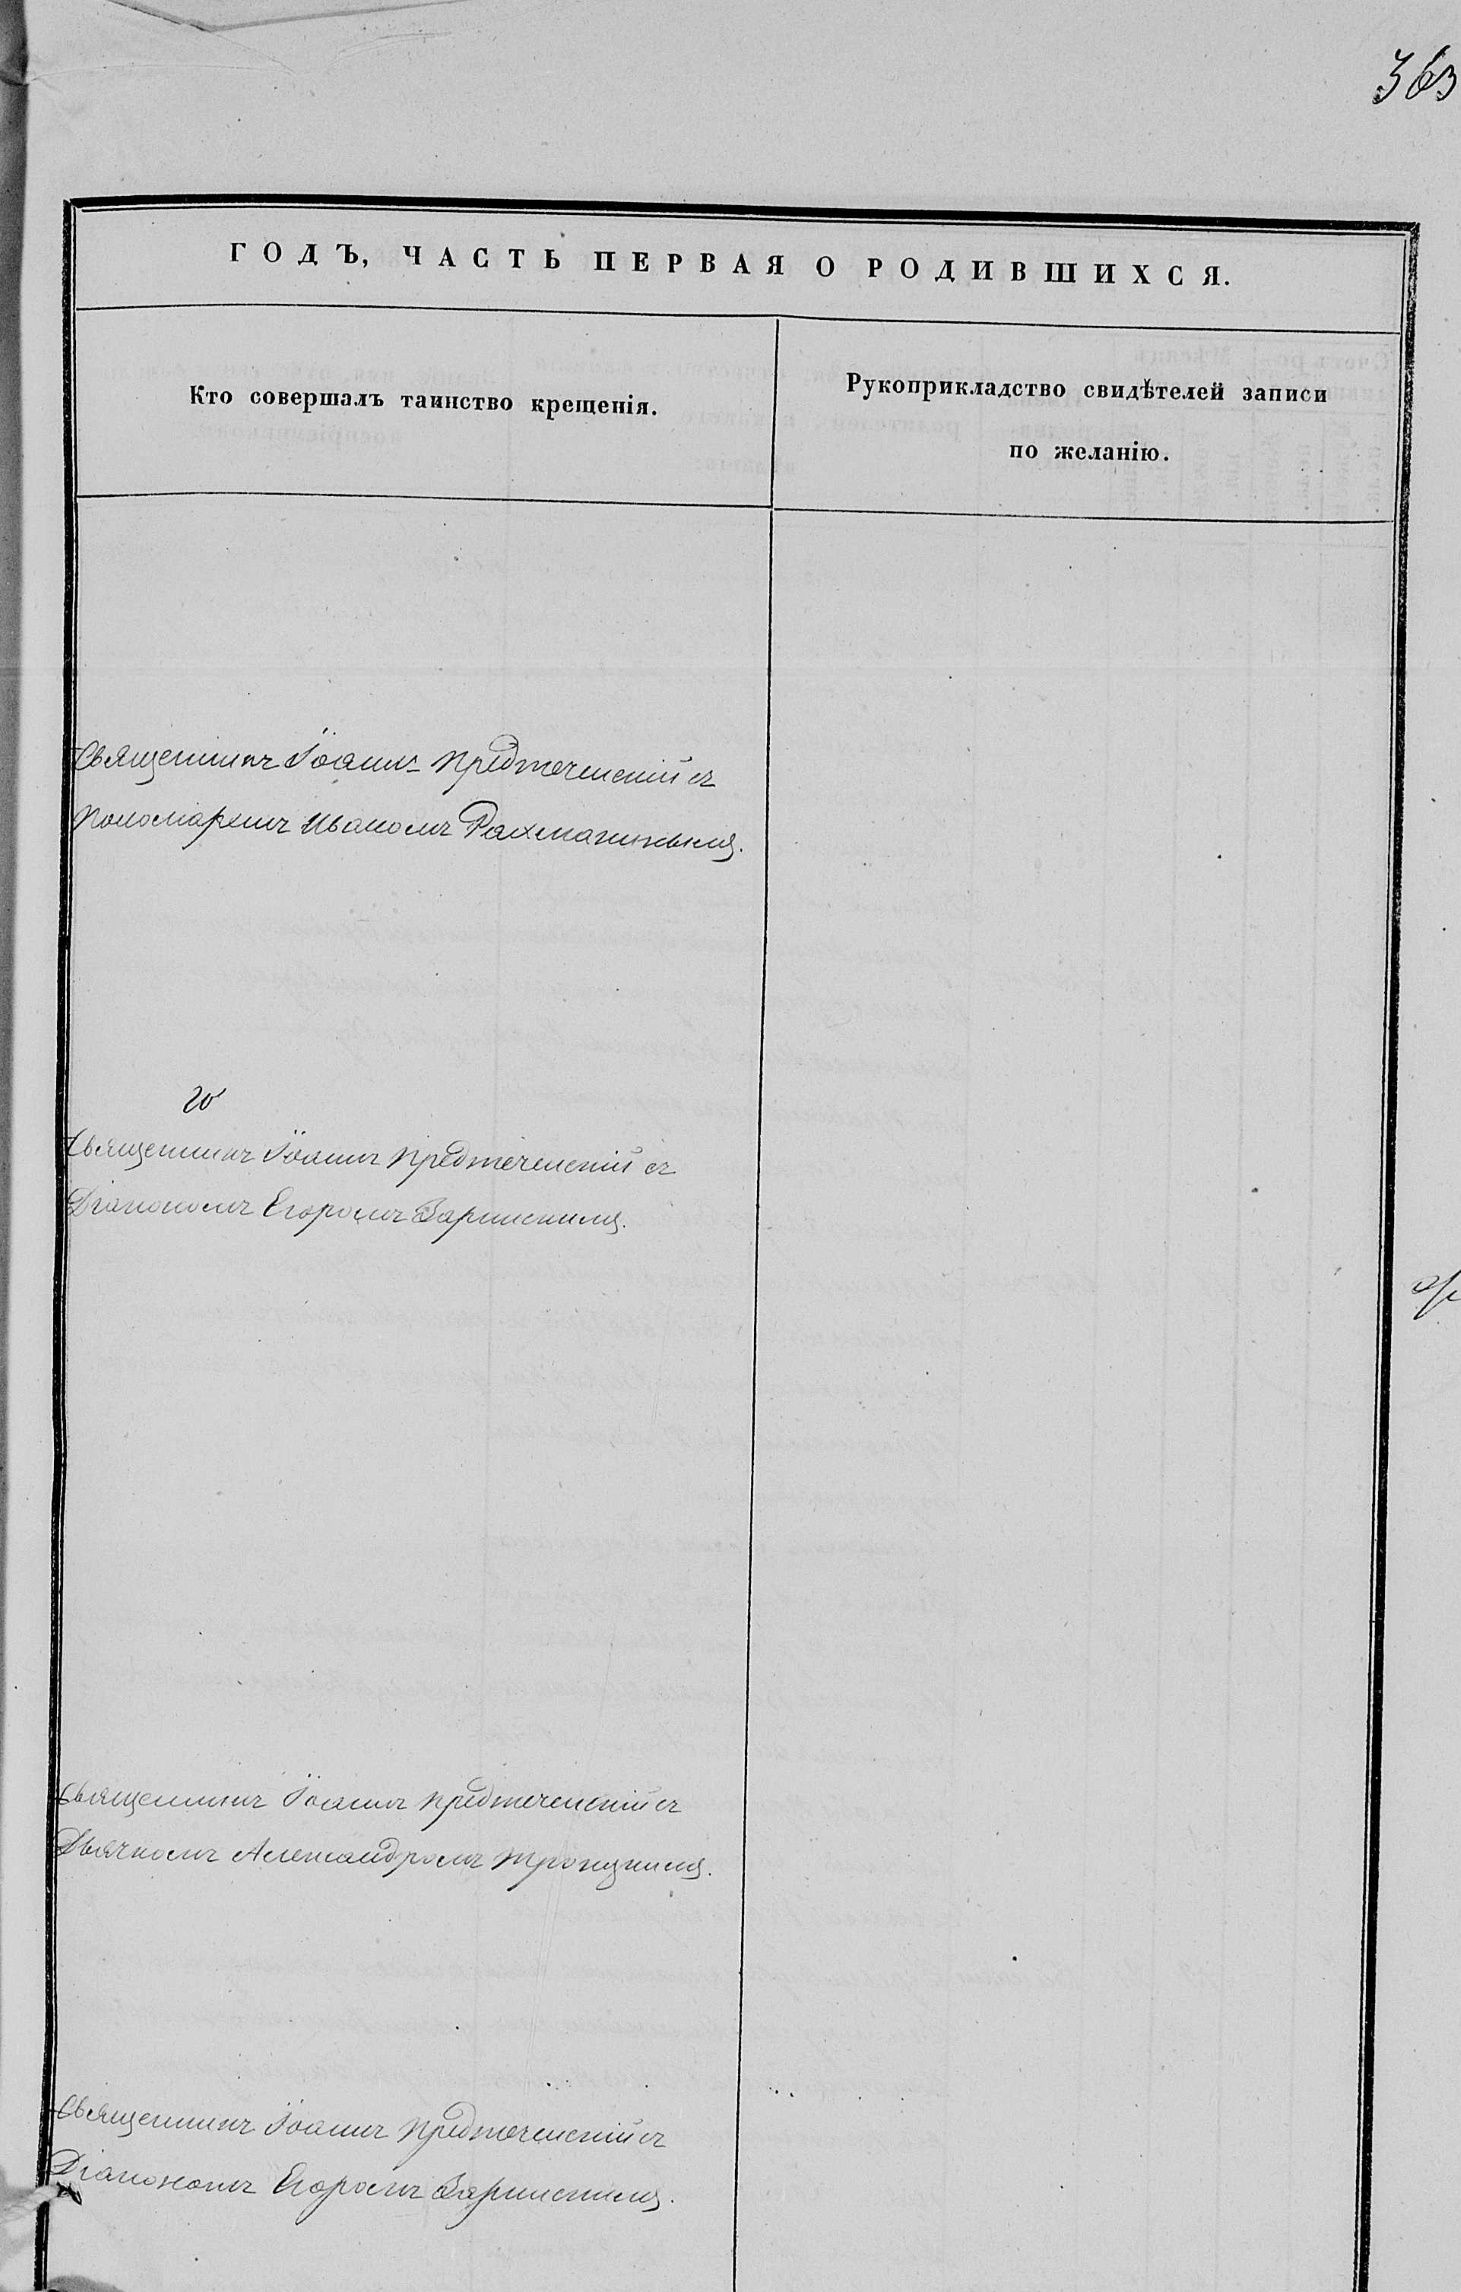 363
ГОДЪ, ЧАСТЬ ПЕРВАЯ О РОДИВШИХСЯ.
Кто совершалъ таинство крещенія.
Рукоприкладство свидѣтелей записи
по желанію.
Священникъ Іоаннъ Предтеченскій съ
Пономаремъ Иваномъ Рахманинымъ.
Священникъ Іоаннъ Предтеченскій съ
Діакономъ Егоромъ Заринскимъ.
Священникъ Іоаннъ Предтеченскій съ
Дьячкомъ Александромъ
Священникъ Іоаннъ Предтеченскій съ
Діакономъ Егоромъ Заринскимъ.